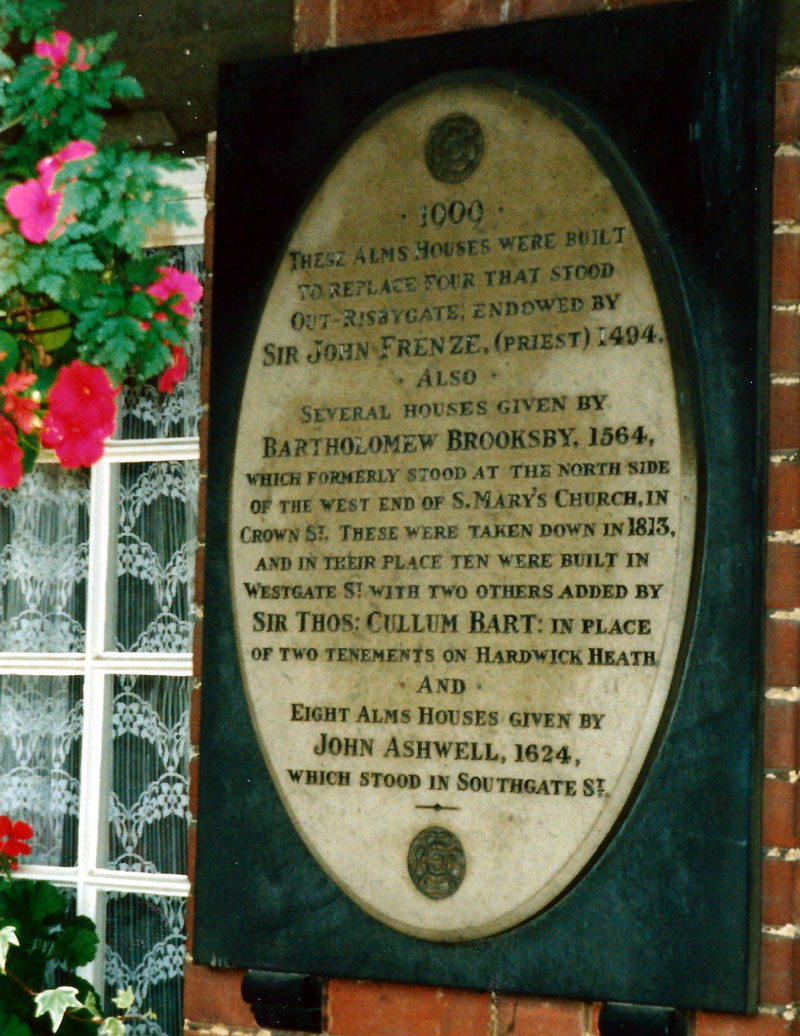 · 1909 ·
THESE ALMS HOUSES WERE BUILT
TO REPLACE FOUR THAT STOOD
OUT-RISBYGATE, ENDOWED BY
SIR JOHN FRENZE, (PRIEST) 1494.
· ALSO ·
SEVERAL HOUSES GIVEN BY
BARTHOLOMEW BROOKSBY, 1564,
WHICH FORMERLY STOOD AT THE NORTH SIDE
OF THE WEST END OF S. MARY'S CHURCH, IN
CROWN ST. THESE WERE TAKEN DOWN IN 1813,
AND IN THEIR PLACE TEN WERE BUILT IN
WESTGATE ST WITH TWO OTHERS ADDED BY
SIR THOS: CULLUM BART: IN PLACE
OF TWO TENEMENTS ON HARDWICK HEATH
· AND ·
EIGHT ALMS HOUSES GIVEN BY
JOHN ASHWELL, 1624,
WHICH STOOD IN SOUTHGATE ST.